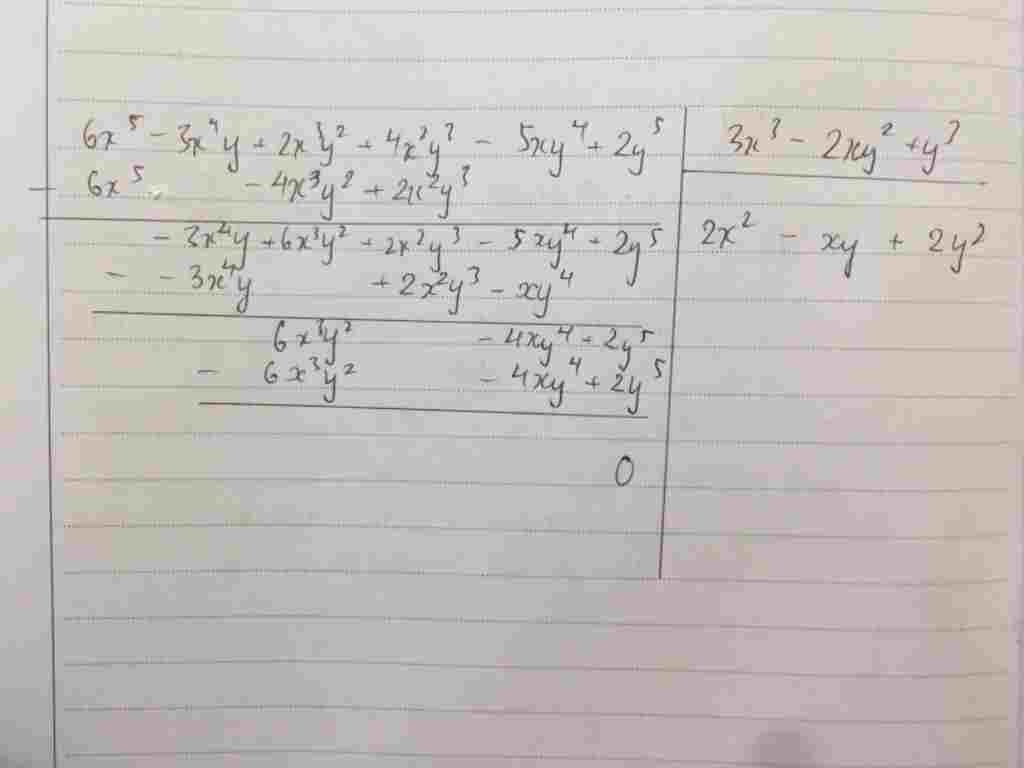 6x⁵ - 3x⁴y + 2x³y² + 4x²y³ - 5xy⁴ + 2y⁵
3x³ - 2xy² + y³
- 6x⁵ - 4x³y² + 2x²y³
- 3x⁴y + 6x³y² + 2x²y³ - 5xy⁴ + 2y⁵
2x² - xy + 2y²
- - 3x⁴y + 2x²y³ - xy⁴
6x³y² - 4xy⁴ + 2y⁵
- 6x³y² - 4xy⁴ + 2y⁵
0